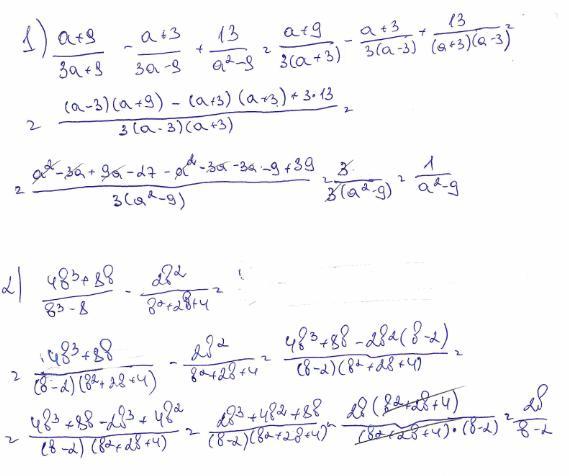 1) (a+9)/(3a+9) - (a+3)/(3a-9) + 13/(a²-9) = (a+9)/(3(a+3)) - (a+3)/(3(a-3)) + 13/((a+3)(a-3)) =
= ((a-3)(a+9) - (a+3)(a+3) + 3·13)/(3(a-3)(a+3)) =
= (a²-3a+9a-27-a²-3a-3a-9+39)/(3(a²-9)) = 3/(3(a²-9)) = 1/(a²-9)
2) (4b³+8b)/(b³-8) - 2b²/(b²+2b+4) =
= (4b³+8b)/((b-2)(b²+2b+4)) - 2b²/(b²+2b+4) = (4b³+8b-2b²(b-2))/((b-2)(b²+2b+4)) =
= (4b³+8b-2b³+4b²)/((b-2)(b²+2b+4)) = (2b³+4b²+8b)/((b-2)(b²+2b+4)) = (2b(b²+2b+4))/((b²+2b+4)·(b-2)) = 2b/(b-2)